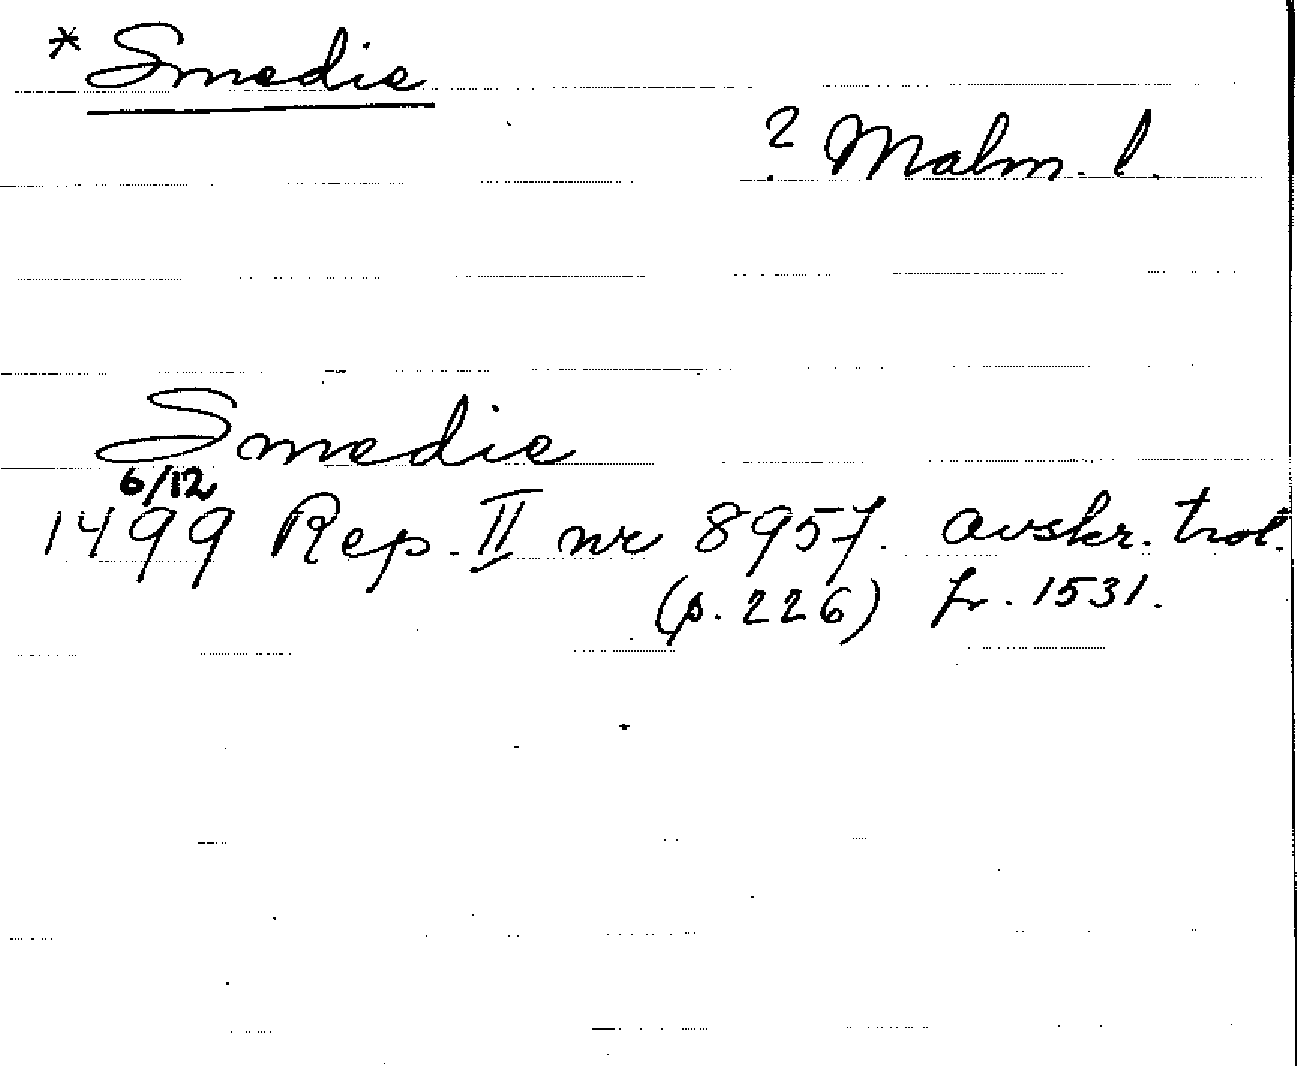 * Smedie
? Malm. l.
Smedie
6/12
1499 Rep. II nr 8957. avskr. trol.
(p. 226) fr. 1531.